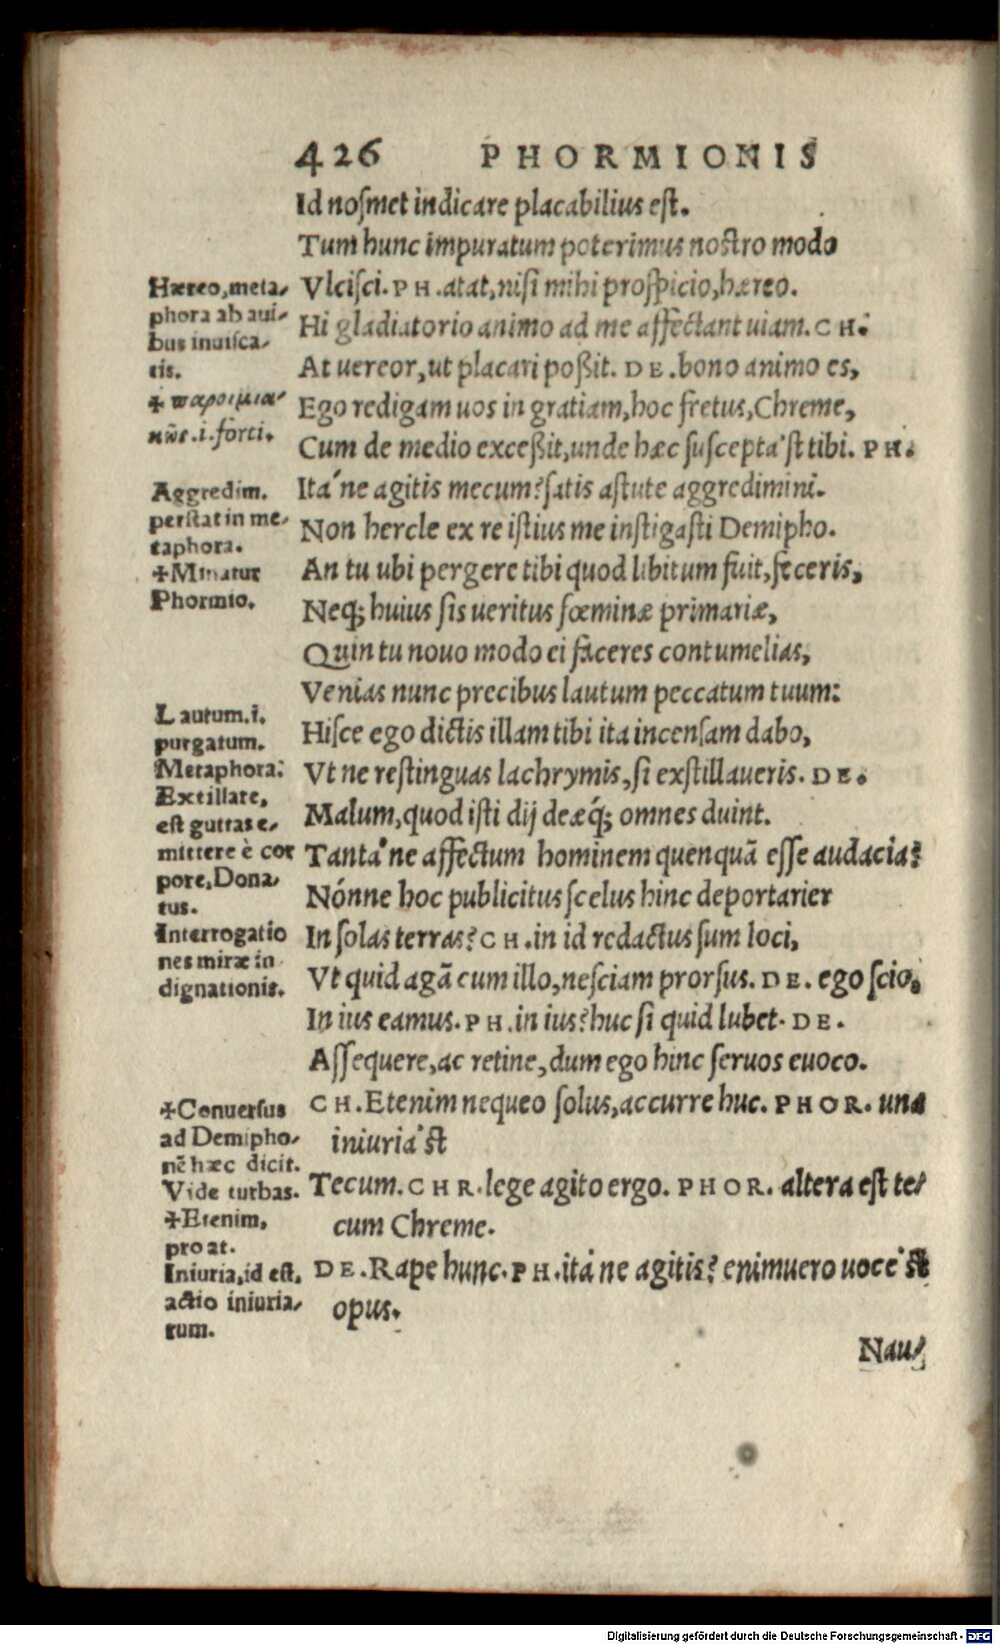 426 PHORMIONIS
Id noſmet indicare placabilius eſt.
Tum hunc impuratum poterimus noſtro modo
Vlciſci. PH. atat, niſi mihi proſpicio, hæreo.
Hi gladiatorio animo ad me affectant uiam. CH.
At uereor, ut placari poßit. DE. bono animo es,
Ego redigam uos in gratiam, hoc fretus, Chreme,
Cum de medio exceßit, unde hæc ſuſcepta'ſt tibi. PH.
Itá ne agitis mecum? ſatis aſtute aggredimini.
Non hercle ex re iſtius me inſtigaſti Demipho.
An tu ubi pergere tibi quod libitum fuit, feceris,
Neq; huius ſis ueritus fœminæ primariæ,
Quin tu nouo modo ei faceres contumelias,
Venias nunc precibus lautum peccatum tuum:
Hiſce ego dictis illam tibi ita incenſam dabo,
Vt ne reſtinguas lachrymis, ſi exſtillaueris. DE.
Malum, quod iſti dij deæq́; omnes duint.
Tantá ne affectum hominem quenquã eſſe audacia?
Nónne hoc publicitus ſcelus hinc deportarier
In ſolas terras? CH. in id redactus ſum loci,
Vt quid agã cum illo, neſciam prorſus. DE. ego ſcio.
In ius eamus. PH. in ius? huc ſi quid lubet. DE.
Aſſequere, ac retine, dum ego hinc ſeruos euoco.
CH. Etenim nequeo ſolus, accurre huc. PHOR. una
iniuria'ſt
Tecum. CHR. lege agito ergo. PHOR. altera eſt te-
cum Chreme.
DE. Rape hunc. PH. itá ne agitis? enimuero uoce'ſt
opus.
Nau-
Hæreo, meta-
phora ab aui-
bus inuiſca-
tis.
✢ παροιμια-
κῶς .i. forti.
Aggredim.
perſtat in me-
taphora.
✢Minatur
Phormio.
Lautum .i.
purgatum.
Metaphora:
Extillare,
eſt guttas e-
mittere è cor
pore, Dona-
tus.
Interrogatio
nes miræ in
dignationis.
✢Conuerſus
ad Demipho-
nẽ hæc dicit.
Vide turbas.
✢Etenim,
pro at.
Iniuria, id eſt,
actio iniuria-
rum.
Digitalisierung gefördert durch die Deutsche Forschungsgemeinschaft - DFG